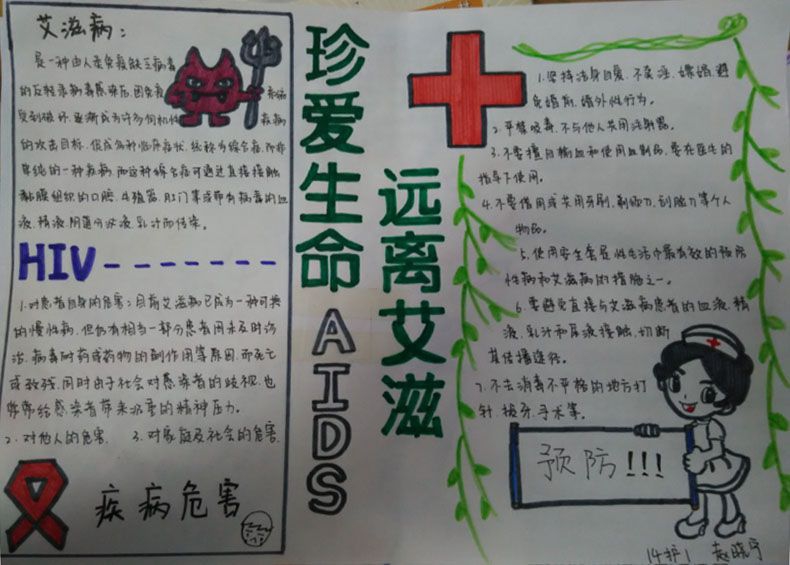 艾滋病：
是一种由人类免疫缺乏病毒
的反转录病毒感染后，因免疫系统
受到破坏，逐渐成为许多伺机性疾病
的攻击目标，促成多种临床症状，统称为综合症，而非
单纯的一种疾病，而这种综合症可通过直接接触
黏膜组织的口腔、生殖器、肛门等或带有病毒的血
液、精液、阴道分泌液、乳汁而传染。
HIV-------
1.对患者自身的危害：目前艾滋病已成为一种可控
的慢性病，但仍有相当一部分患者因未及时诊
治，病毒耐药或药物的副作用等原因，而死亡
或致残，同时由于社会对感染者的歧视，也
常常给感染者带来沉重的精神压力。
2.对他人的危害 3.对家庭及社会的危害
疾病危害
珍爱生命
AIDS
远离艾滋
1.坚持洁身自爱，不卖淫、嫖娼，避
免婚前、婚外性行为。
2.严禁吸毒，不与他人共用注射器。
3.不要擅自输血和使用血制品，要在医生的
指导下使用。
4.不要借用或共用牙刷、剃须刀、刮脸刀等个人
物品。
5.使用安全套是性生活中最有效的预防
性病和艾滋病的措施之一。
6.要避免直接与艾滋病患者的血液、精
液、乳汁和尿液接触，切断
其传播途径。
7.不去消毒不严格的地方打
针、拔牙、手术等。
预防!!!
14护1 赵晓宇